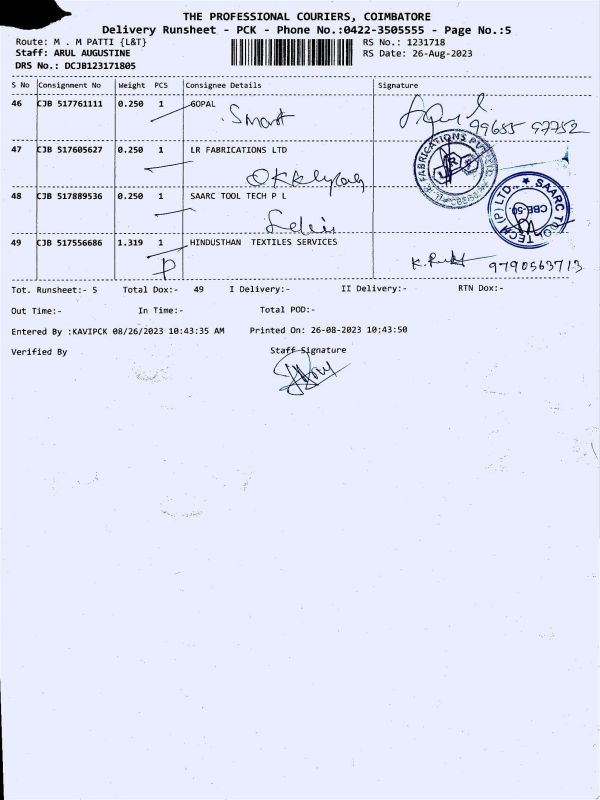 THE PROFESSIONAL COURIERS, COIMBATORE
Delivery Runsheet - PCK - Phone No.:0422-3505555 - Page No.:5
Route: M . M PATTI {L&T} RS No.: 1231718
Staff: ARUL AUGUSTINE RS Date: 26-Aug-2023
DRS No.: DCJB123171805
S No Consignment No Weight PCS Consignee Details Signature
46 CJB 517761111 0.250 1 GOPAL
Smart 99655 97752
47 CJB 517605627 0.250 1 LR FABRICATIONS LTD
FABRICATIONS PVT LTD
48 CJB 517889536 0.250 1 SAARC TOOL TECH P L
SAARC TOOL TECH (P) LTD.,
CBE-50
49 CJB 517556686 1.319 1 HINDUSTHAN TEXTILES SERVICES
P 9790563713
Tot. Runsheet:- 5 Total Dox:- 49 I Delivery:- II Delivery:- RTN Dox:-
Out Time:- In Time:- Total POD:-
Entered By :KAVIPCK 08/26/2023 10:43:35 AM Printed On: 26-08-2023 10:43:50
Verified By Staff Signature